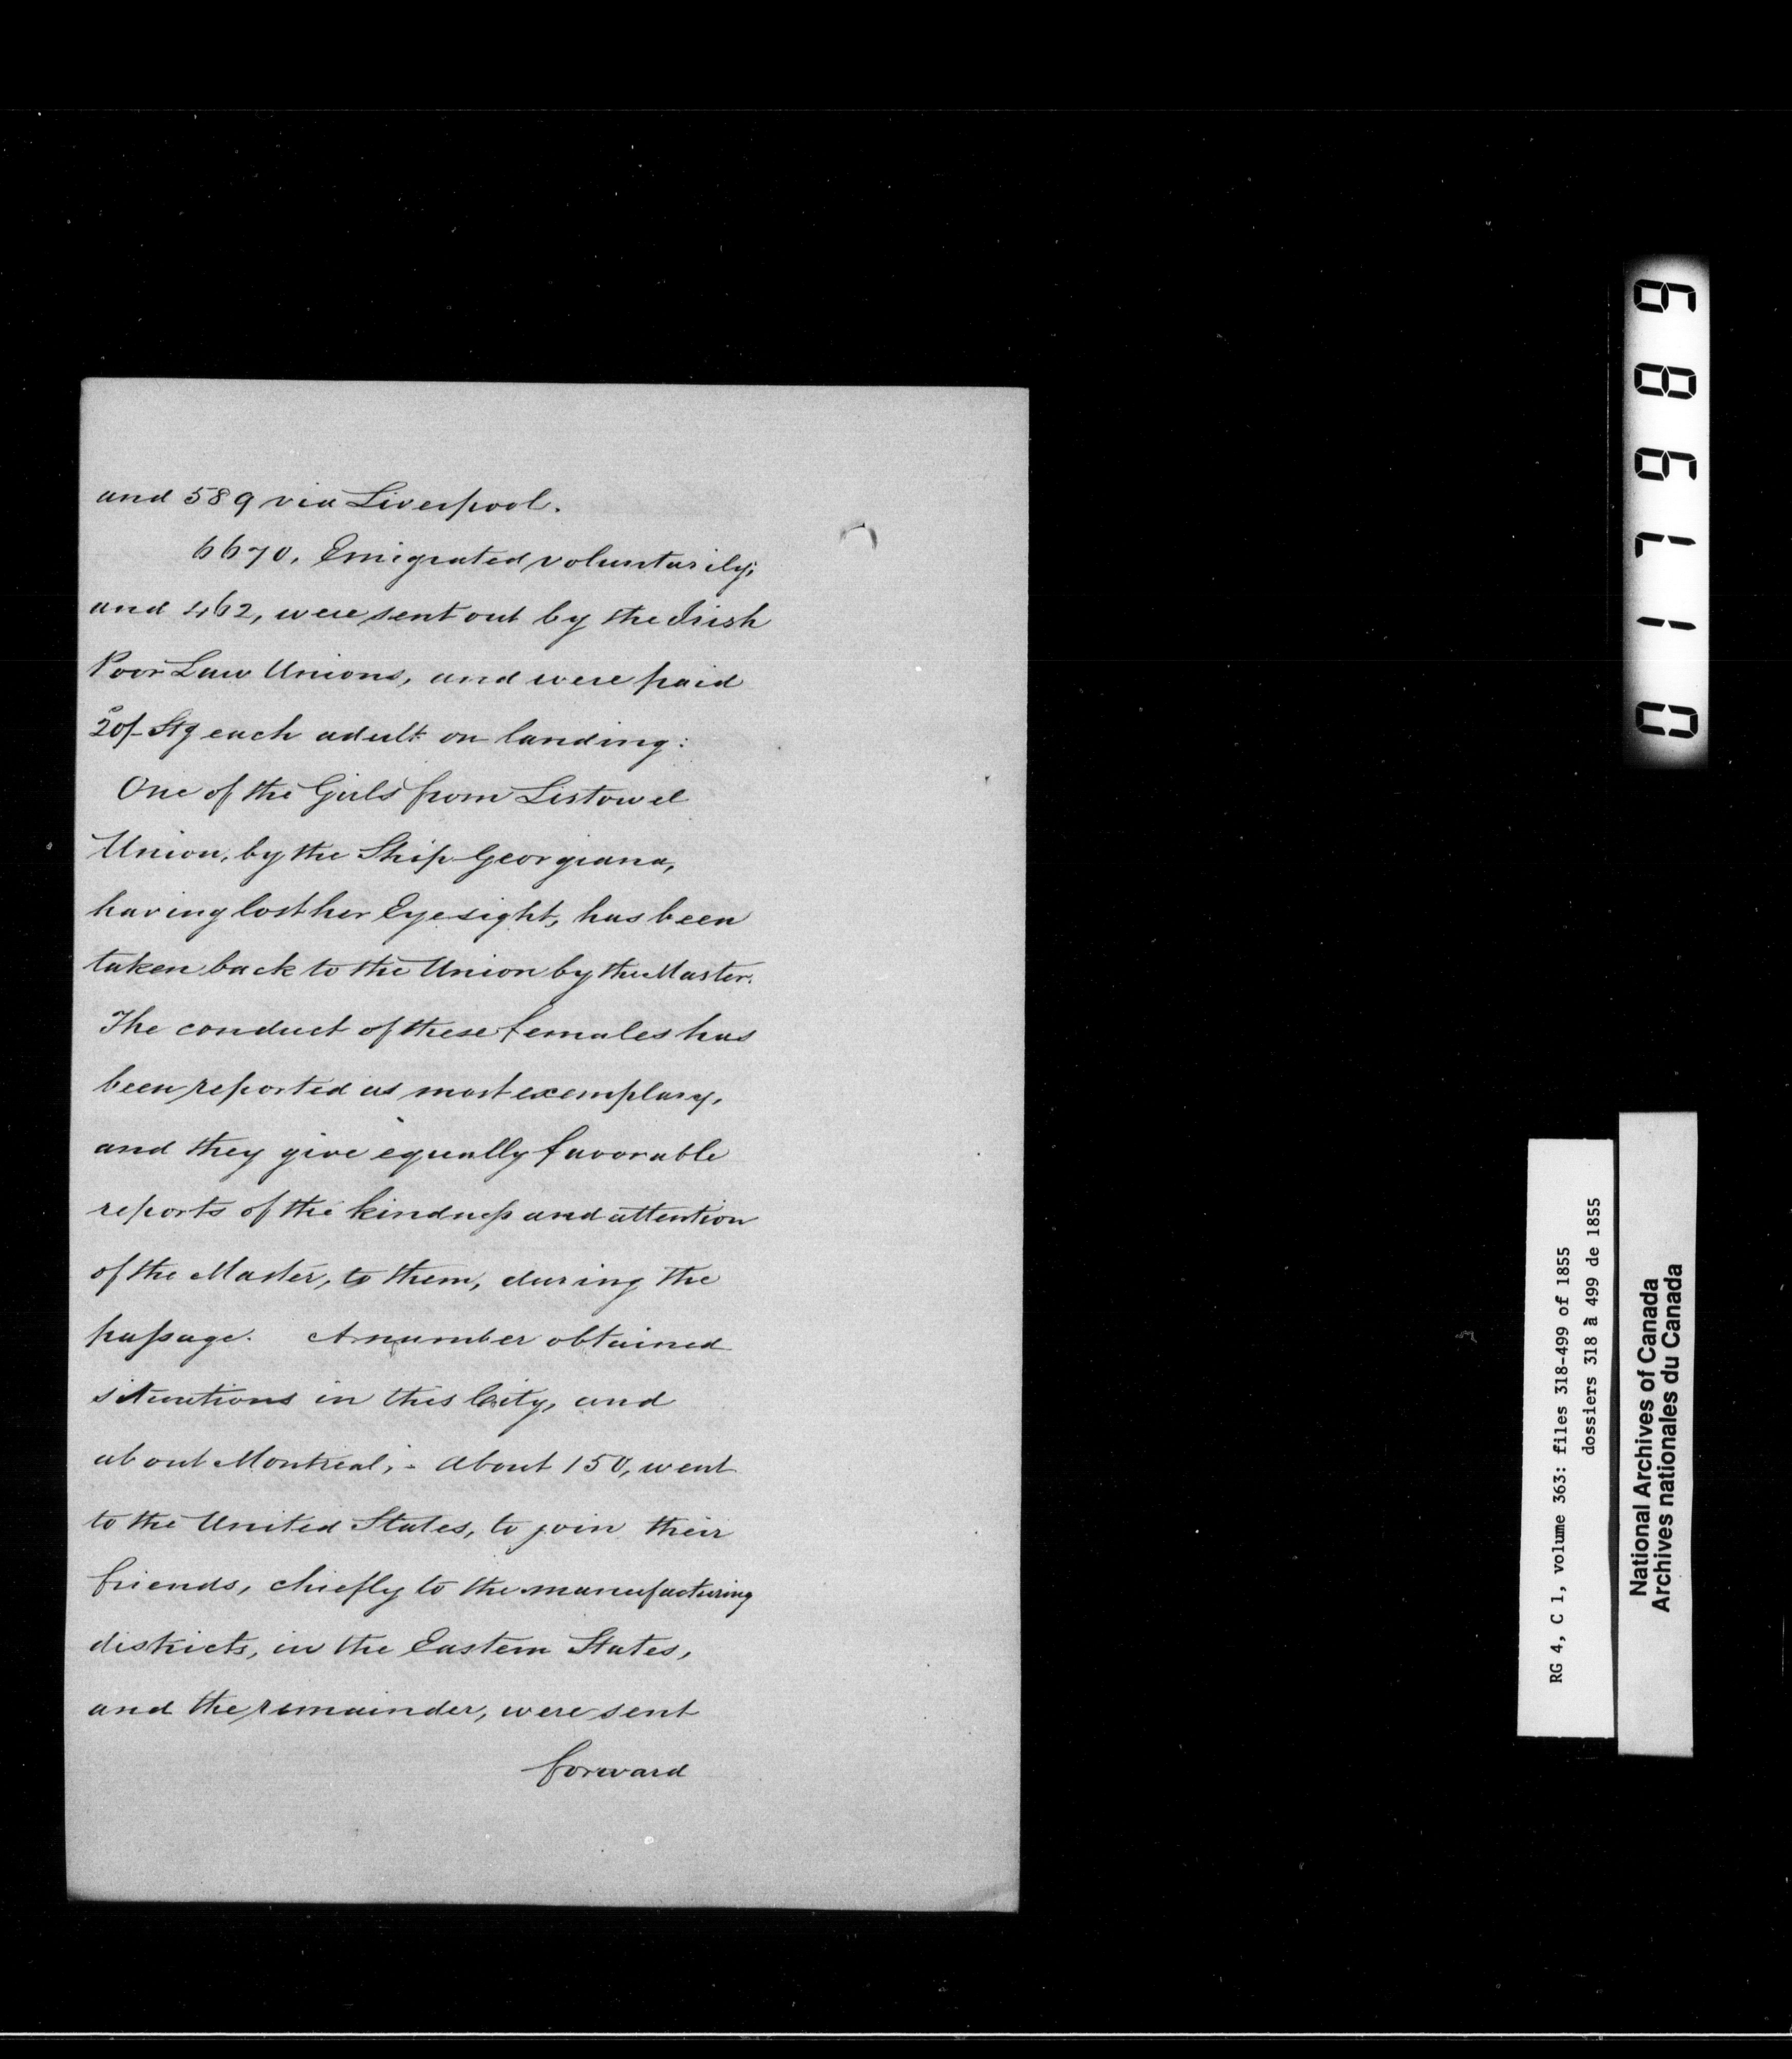 and 589 via Liverpool.
6670, Emigrated voluntarily;
and 462, were sent out by the Irish
Poor Law Unions, and were paid
20/- Stg each adult on landing:
One of the Girls from Listowel
Union, by the Ship Georgiana,
having lost her Eyesight, has been
taken back to the Union by the Master.
The conduct of these females has
been reported as most exemplary,
and they give equally favorable
reports of the kindness and attention
of the Master, to them, during the
passage. A number obtained
situations in this City, and
about Montreal; - About 150, went
to the United States, to join their
friends, chiefly to the manufacturing
districts, in the Eastern States,
and the remainder, were sent
forward
017989
RG 4, C 1, volume 363: files 318-499 of 1855
dossiers 318 à 499 de 1855
National Archives of Canada
Archives nationales du Canada